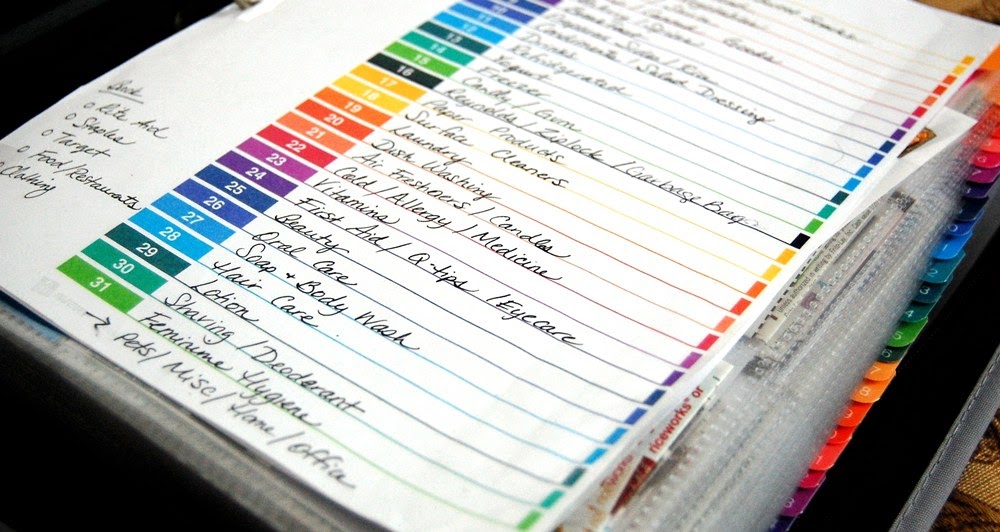 Goods
Condiments / Salad Dressing
11 Drinks
12 Refrigerated
13 Yogurt
14 Freezer
15 Candy / Gum
16 Reynolds / Ziplock / Garbage Bags
17 Paper Products
18 Surface Cleaners
19 Laundry
20 Dish Washing
21 Air Freshners / Candles
22 Cold / Allergy / Medicine
23 Vitamins
24 First Aid / Q-tips / Eyecare
25 Beauty
26 Oral Care
27 Soap + Body Wash
28 Hair Care
29 Lotion
30 Shaving / Deodorant
31 Feminine Hygiene
→ Pets / Misc / Home / Office
Back
o Rite Aid
o Staples
o Target
o Food/Restaurants
o Clothing
riceworks® or